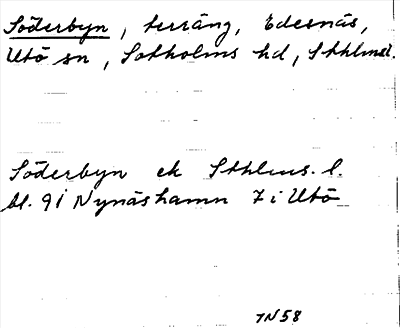 Söderbyn, terräng, Edesnäs,
Utö sn, Sotholms hd, Sthlmsl.
Söderbyn ek Sthlms. l.
bl. 91 Nynäshamn 7 i Utö
IN 58